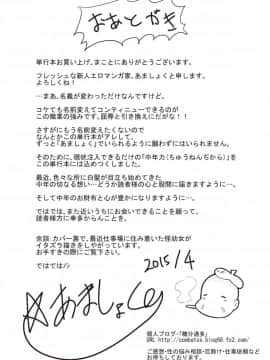 おあとがき
単行本お買い上げ、まことにありがとうございます。
フレッシュな新人エロマンガ家、あましょくと申します。
よろしくね!
…まあ、名義が変わっただけなんですけど。
コケても名前変えてコンティニューできるのが
この職業の強みです。屈辱と引き換えにだがな!!
さすがにもう名前変えたくないので
なんとかこの単行本がアレして、
ずっと「あましょく」でいられるように願わずにはいられません。
そのために、現状注入できるだけの「中年力(ちゅうねんぢから)を
この単行本には込めてつくりました。
最近、色々な所に白髪が目立ち始めてきた
中年の切なる想い…どうか読者様の心と股間に届きますように…。
そして中年のお財布と心が少しでも豊かになりますように…。
ではでは、また近いうちにお会いできることを願って、
諸書様方に幸多からんことを。
余談:カバー裏で、最近仕事場に住み着いた怪幼女が
イタズラ描きをしやがっています。
お手すきの際にご覧下さい。
ではでは!
2015/4
あましょく
個人ブログ・「糖分過多」
URL http://combatas.blog66.fc2.com/
ご感想・性の悩み相談・花掛け・仕事依頼など